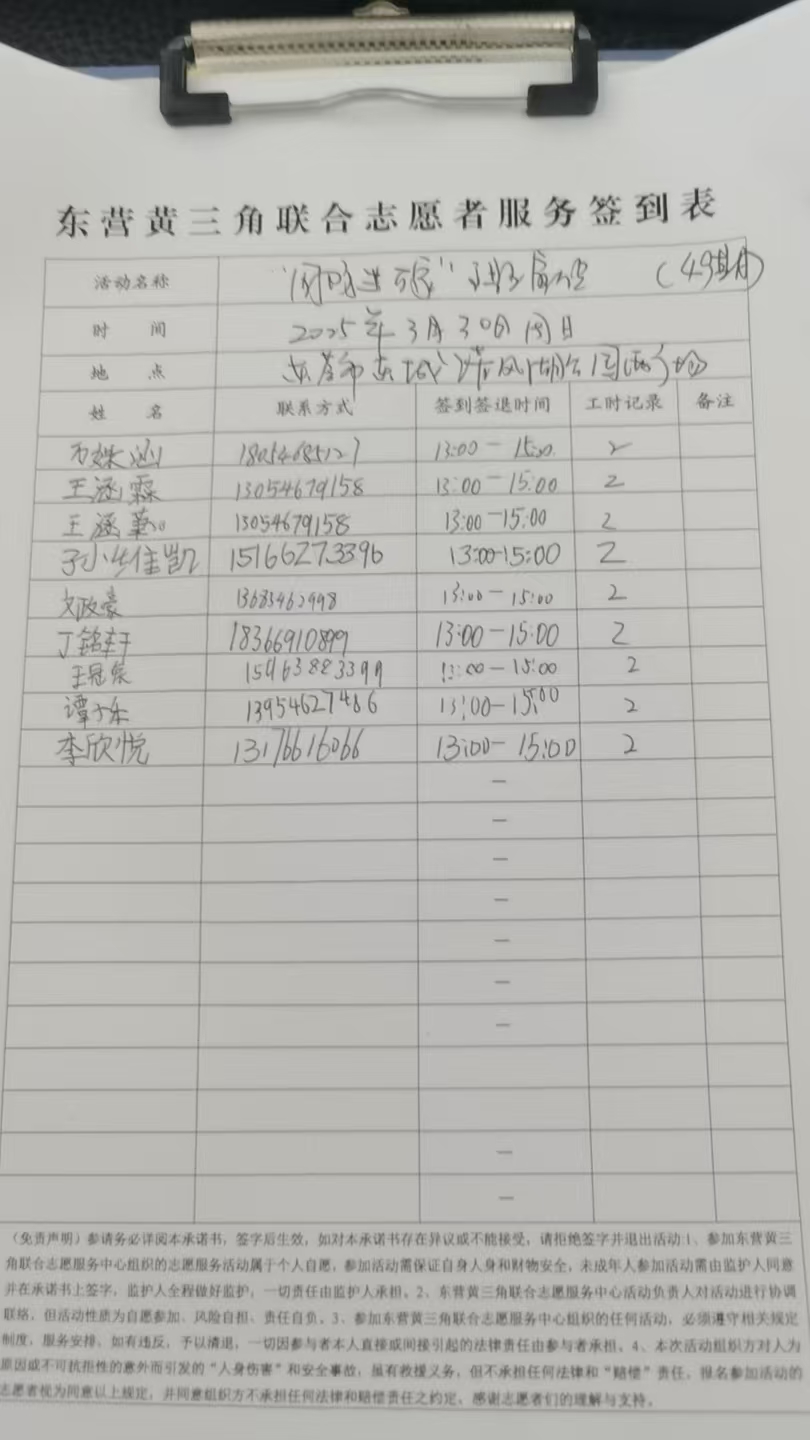 东营黄三角联合志愿者服务签到表
活动名称 (49期)
时 间 2025年3月30日周日
地 点 东营市东城清风湖公园西广场
姓 名 联系方式 签到签退时间 工时记录 备注
18054685127 13:00-15:00 2
王涵霖 13054679158 13:00-15:00 2
王涵 13054679158 13:00-15:00 2
佳凯 15166273396 13:00-15:00 2
政豪 13:00-15:00 2
丁铭轩 18366910899 13:00-15:00 2
王冠 15463883399 13:00-15:00 2
谭 13954627486 13:00-15:00 2
李欣悦 13176616066 13:00-15:00 2
—
—
—
—
—
—
—
—
—
(免责声明)参请务必详阅本承诺书,签字后生效,如对本承诺书存在异议或不能接受,请拒绝签字并退出活动:1、参加东营黄三
角联合志愿服务中心组织的志愿服务活动属于个人自愿,参加活动需保证自身人身和财物安全,未成年人参加活动需由监护人同意
并在承诺书上签字,监护人全程做好监护,一切责任由监护人承担。2、东营黄三角联合志愿服务中心活动负责人对活动进行协调
联络,但活动性质为自愿参加、风险自担、责任自负。3、参加东营黄三角联合志愿服务中心组织的任何活动,必须遵守相关规定
制度,服务安排,如有违反,予以清退,一切因参与者本人直接或间接引起的法律责任由参与者承担。4、本次活动组织方对人为
原因或不可抗拒性的意外而引发的“人身伤害”和安全事故,虽有救援义务,但不承担任何法律和“赔偿”责任。报名参加活动的
志愿者视为同意以上规定,并同意组织方不承担任何法律和赔偿责任之约定。感谢志愿者们的理解与支持。